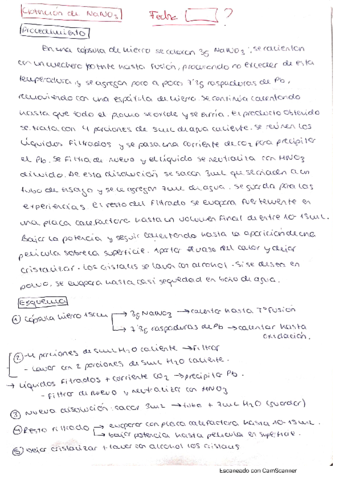 Obtención de NaNO2 Fecha: ?
Procedimiento
En una cápsula de hierro se colocan 3g NaNO3, se calientan
con un mechero potente hasta fusión, procurando no exceder de esta
temperatura y se agregan poco a poco 7'3g raspaduras de Pb,
removiendo con una espátula de hierro. Se continúa calentando
hasta que todo el plomo se oxide y se enfría. El producto obtenido
se trata con 4 porciones de 5mL de agua caliente. Se reúnen los
líquidos filtrados y se pasa una corriente de CO2 para precipitar
el Pb. Se filtra de nuevo y el líquido se neutraliza con HNO3
diluido. De esta disolución se sacan 3mL que se echan a un
tubo de ensayo y se le agregan 7mL de agua. Se guarda para las
experiencias. El resto del filtrado se evapora fuertemente en
una placa calefactora hasta un volumen final de entre 10-15mL.
Bajar la potencia y seguir calentando hasta la aparición de una
película sobre la superficie. Apartar el vaso del calor y dejar
cristalizar. Los cristales se lavan con alcohol. Si se desea en
polvo, se evapora hasta casi sequedad en baño de agua.
Esquema
① Cápsula hierro → 3g NaNO3 → calentar hasta Tª fusión
→ 7'3g raspaduras de Pb → calentar hasta
oxidación.
② - 4 porciones de 5mL H2O caliente → filtrar
- Lavar con 2 porciones de 5mL H2O caliente.
→ Líquidos filtrados + corriente CO2 → precipita Pb.
- Filtrar de nuevo y neutralizar con HNO3
③ Nueva disolución: sacar 3mL → tubo + 7mL H2O (guardar)
④ Resto filtrado → evaporar con placa calefactora hasta 10-15mL
→ bajar potencia hasta película en superficie.
⑤ Dejar cristalizar + lavar con alcohol los cristales
Escaneado con CamScanner